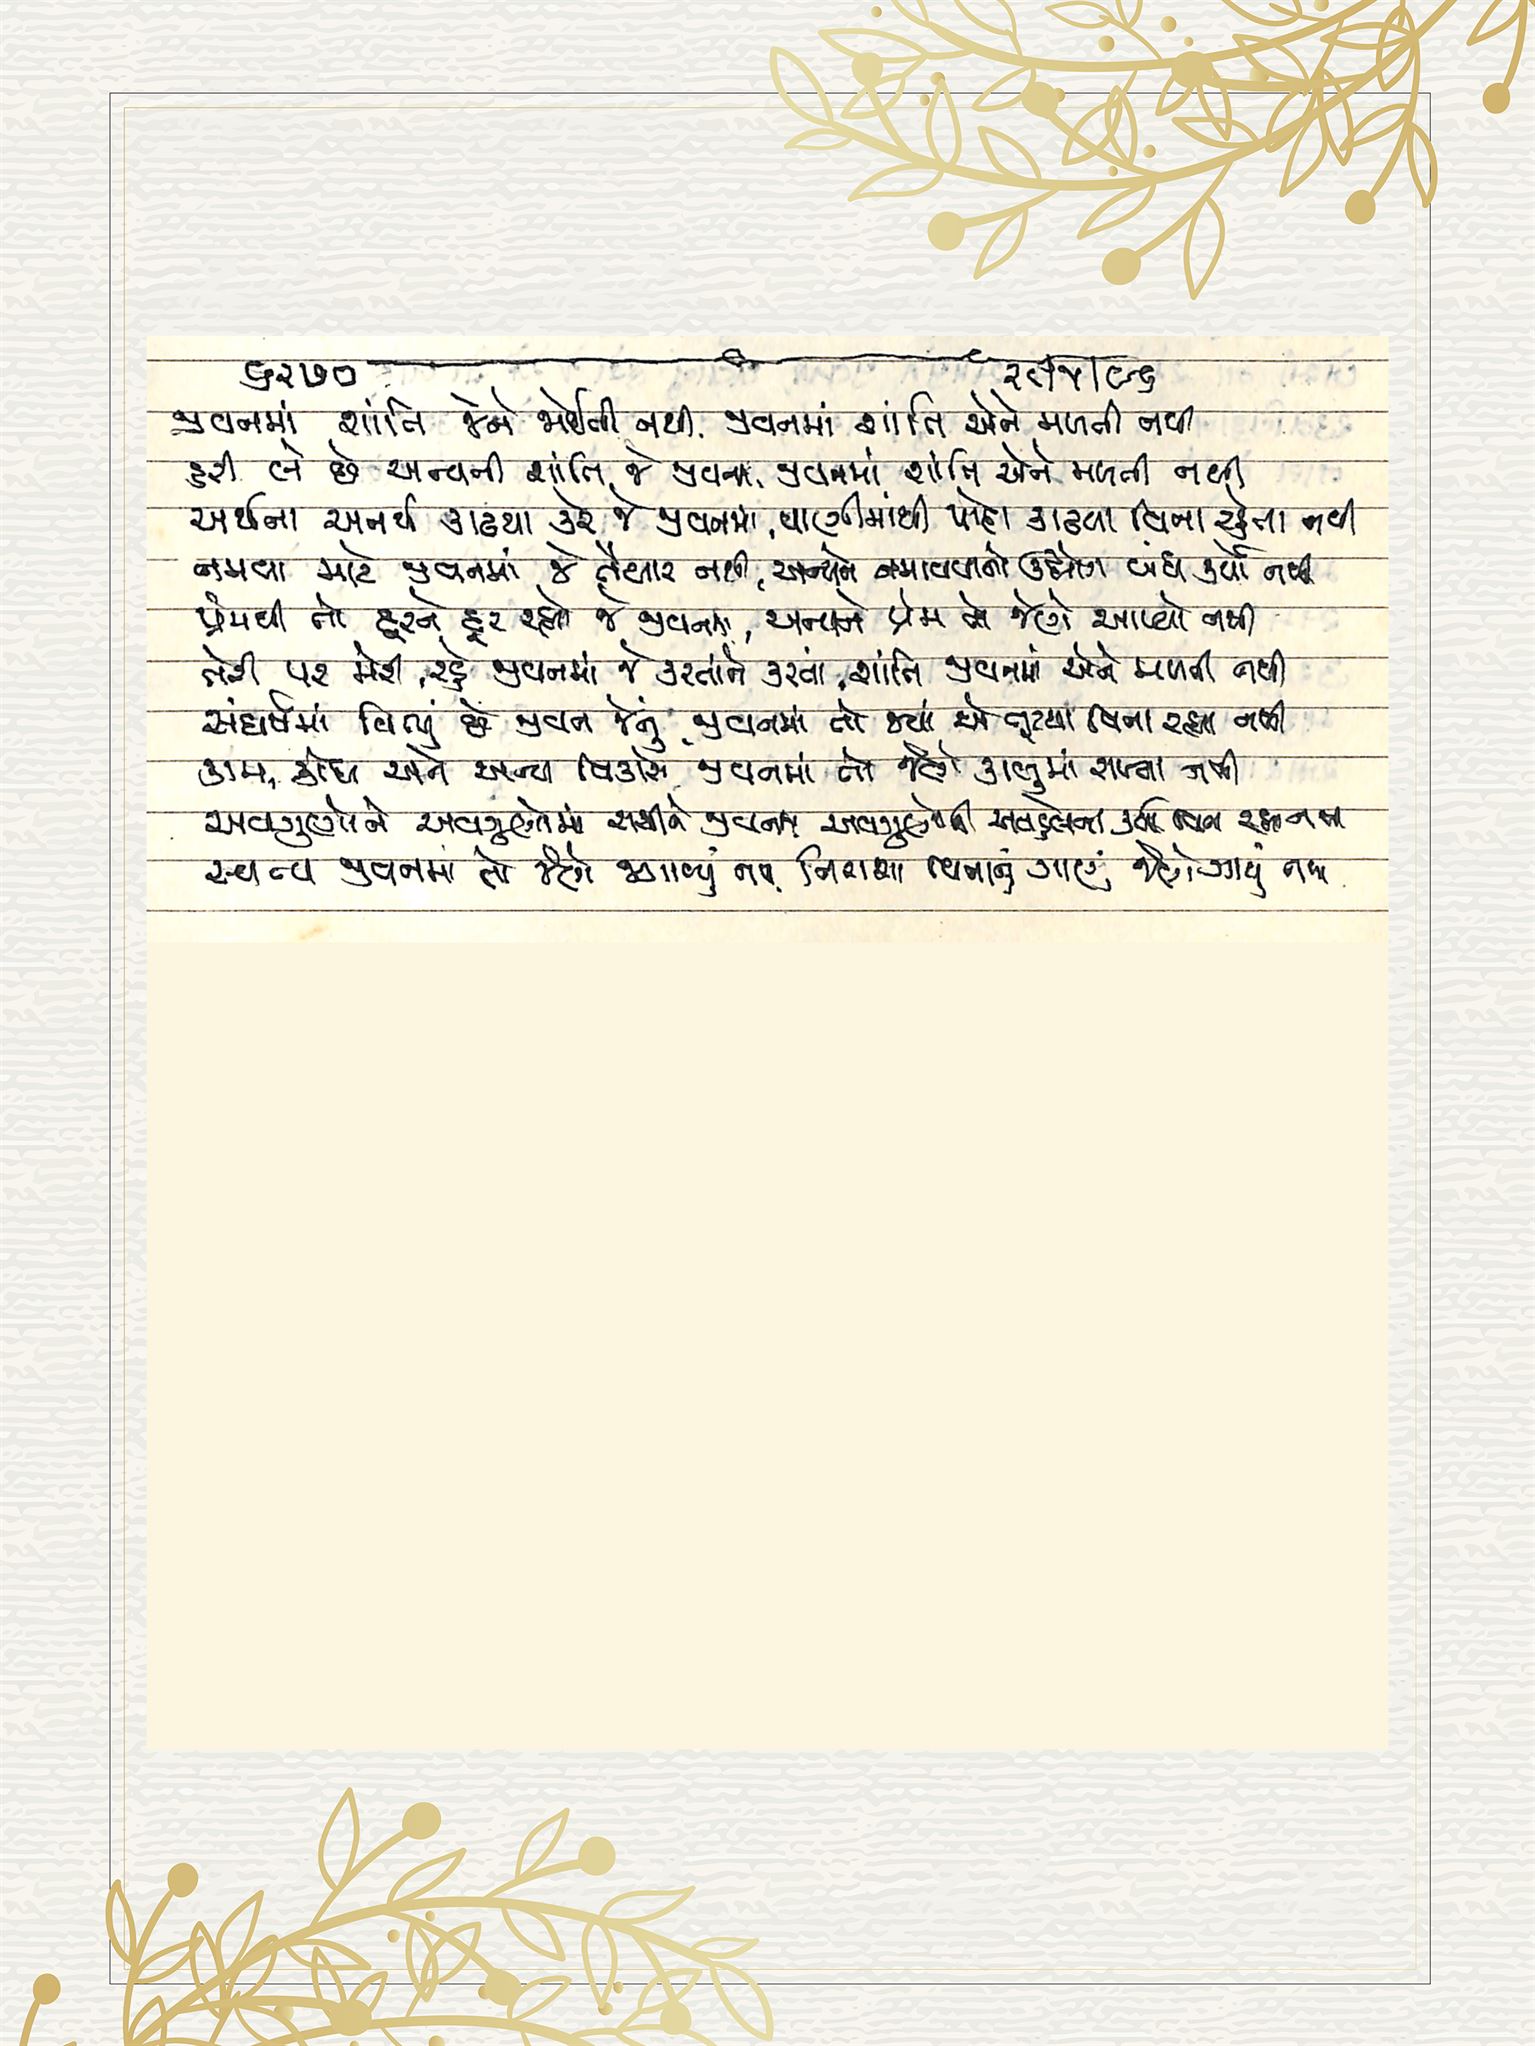 ૬૨૭૦ ૨૯/૪/૯૬
જીવનમાં શાંતિ જેને જોઈતી નથી. જીવનમાં શાંતિ એને મળતી નથી
હરી લે છે અન્યની શાંતિ જે જીવનમાં, જીવનમાં શાંતિ એને મળતી નથી
અર્થના અનર્થ કાઢયા કરે જે જીવનમાં, વાણીમાંથી પોરા કાઢવા વિના રહેતા નથી
નમવા માટે જીવનમાં જે તૈયાર નથી, અન્યને નમાવવાનો ઉદ્યોગ બંધ કર્યો નથી
પ્રેમથી તો દૂરને દૂર રહ્યો જે જીવનમાં, અન્યને પ્રેમ તો જેણે આપ્યો નથી
તેરી પર મેરી, રહે જીવનમાં જે કરતાંને કરતાં, શાંતિ જીવનમાં એને મળતી નથી
સંઘર્ષમાં વિત્યું છે જીવન જેનું, જીવનમાં તો જ્યાં એ તૂટયા વિના રહ્યા નથી
કામ, ક્રોધ અને અન્ય વિકારો જીવનમાં તો જેણે કાબુમાં રાખ્યા નથી
અવગુણોને અવગુણોમાં રાચીને જીવનમાં અવગુણોની અવહેલના કર્યા વિના રહ્યા નથી
અન્ય જીવનમાં તો જેણે જાણ્યું નથી, નિરાશા વિનાનું ગાણું જેણે ગાયું નથી